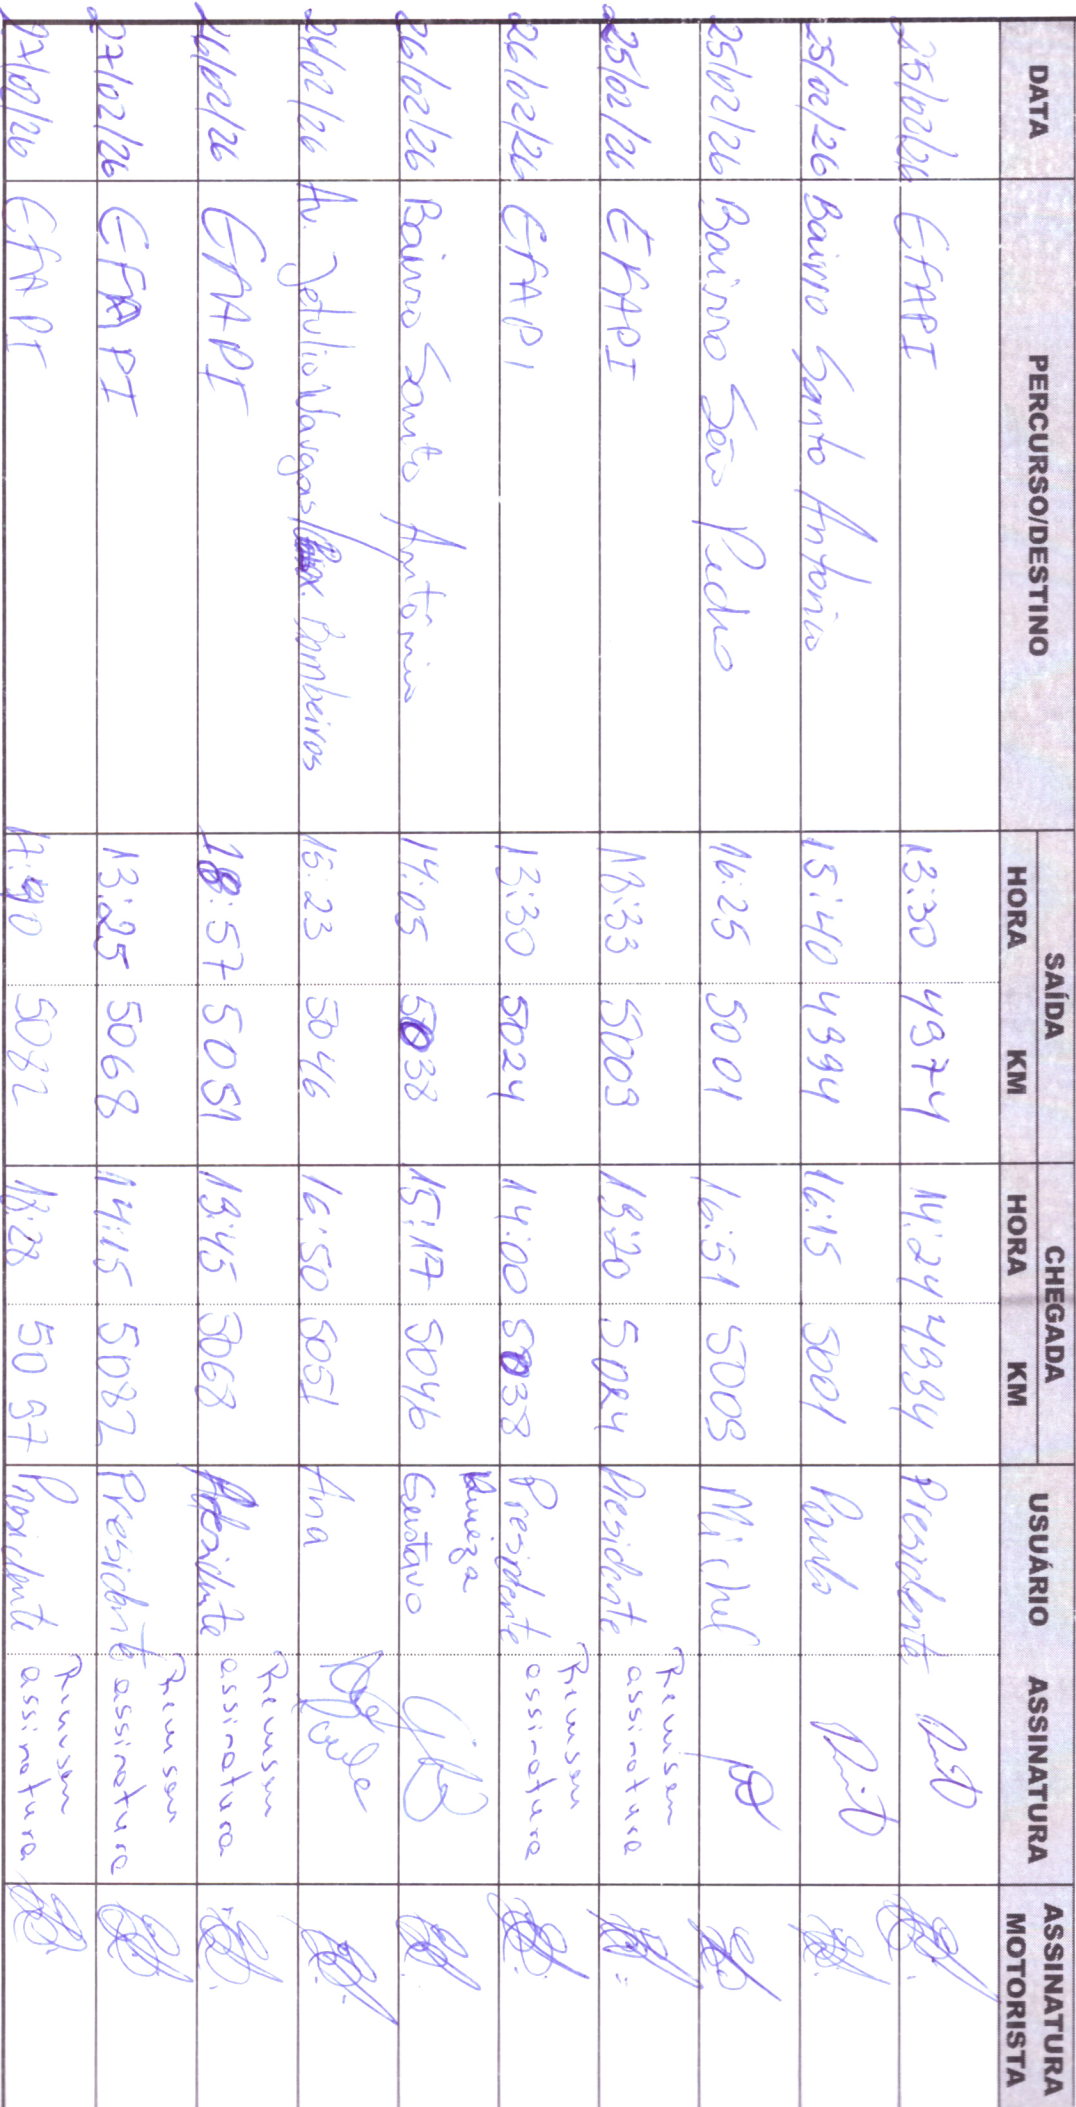 DATA PERCURSO/DESTINO SAÍDA CHEGADA USUÁRIO ASSINATURA ASSINATURA MOTORISTA
HORA KM HORA KM
25/02/26 EFAPI 13:30 4974 14:24 4994 Presidente
25/02/26 Bairro Santo Antonio 15:40 4994 16:15 5001 Paulo
25/02/26 Bairro São Pedro 16:25 5001 16:51 5009 Michel
25/02/26 EFAPI 18:33 5009 19:20 5024 Presidente Rem sem assinatura
26/02/26 EFAPI 13:30 5024 14:00 5038 Presidente Rem sem assinatura
26/02/26 Bairro Santo Antônio 14:05 5038 15:17 5046 Gustavo
26/02/26 Av. Jetulio Vargas/Prox. Bombeiros 16:23 5046 16:50 5051 Ana
26/02/26 EFAPI 18:57 5051 19:45 5068 Presidente Rem sem assinatura
27/02/26 EFAPI 13:25 5068 14:15 5082 Presidente Rem sem assinatura
27/02/26 EFAPI 5082 18:28 5097 Presidente Rem sem assinatura